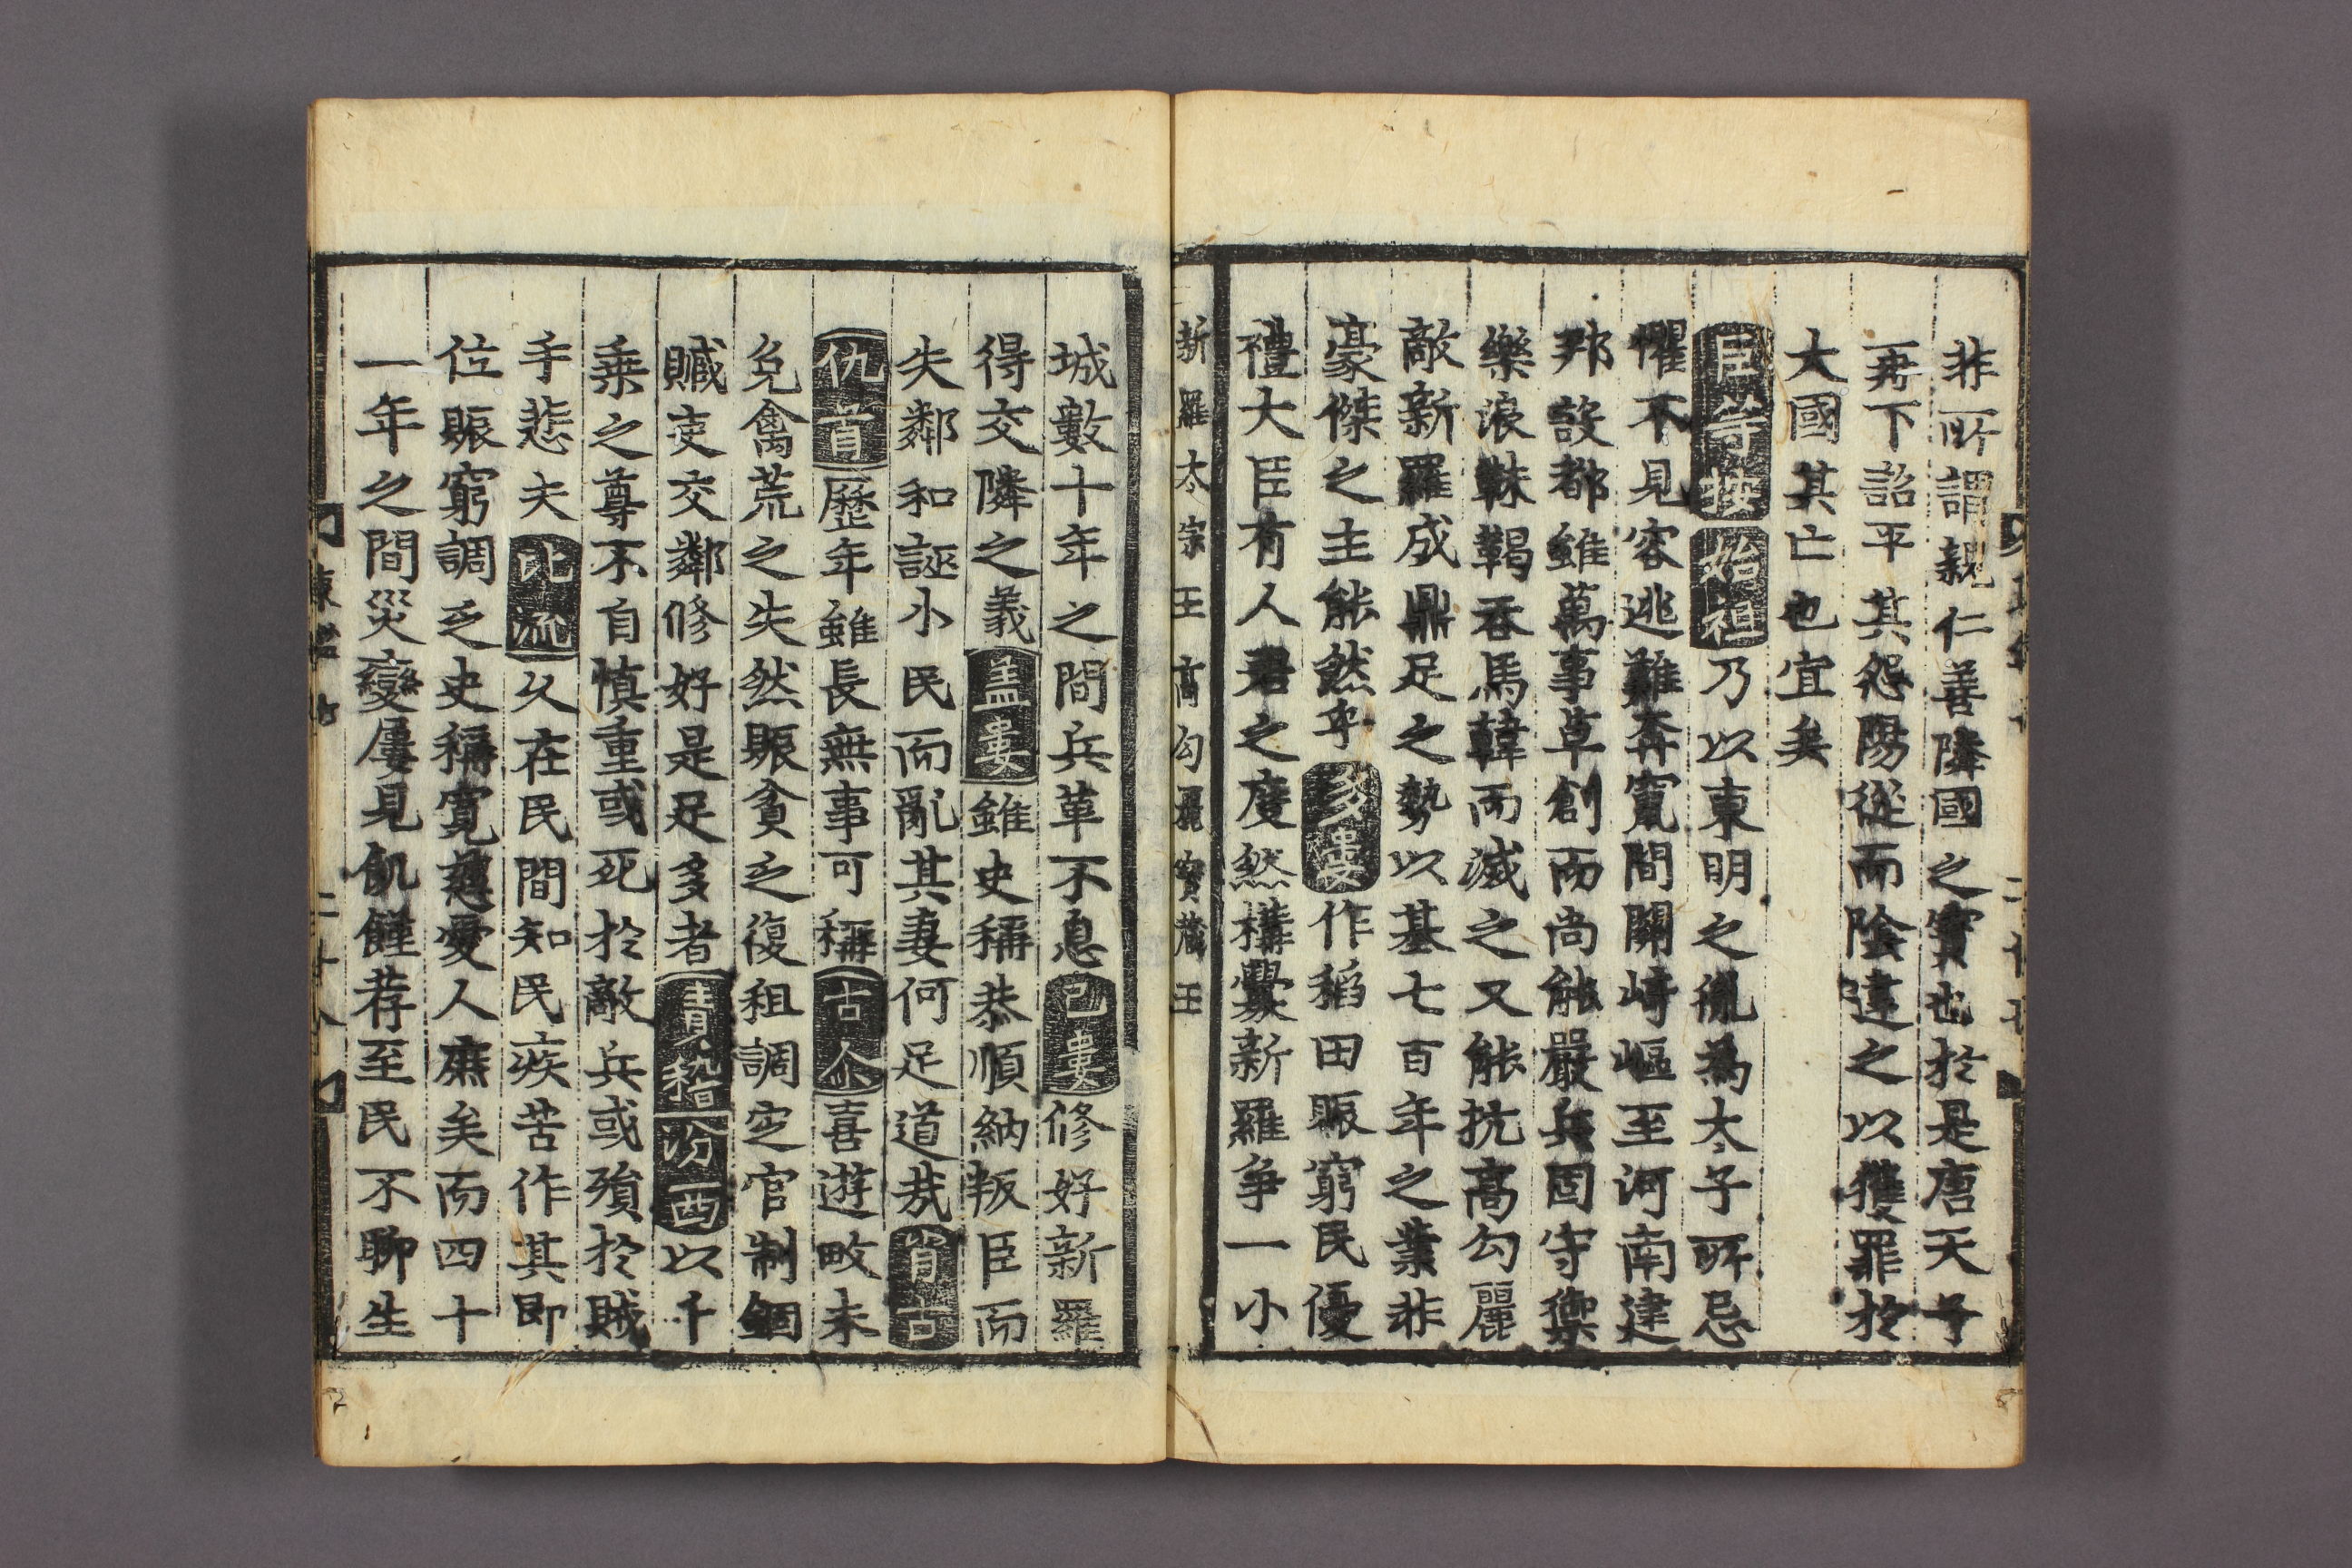 非所謂親仁善隣國之寶也於是唐天子
再下詔平其怨陽從而陰違之以獲罪於
大國其亡也宜矣
臣等按始祖乃以東明之胤為太子所忌
懼不見容逃難奔竄間關崎嶇至河南建
邦設都雖萬事草創而尚能嚴兵固守禦
樂浪靺鞨吞馬韓而滅之又能抗高勾麗
敵新羅成鼎足之勢以基七百年之業非
豪傑之主能然乎多婁作稻田賑窮民優
禮大臣有人君之度然構釁新羅爭一小
新羅太宗王 高勾麗寶藏王
城數十年之間兵革不息己婁修好新羅
得交隣之義盖婁雖史稱恭順納叛臣而
失鄰和誣小民而亂其妻何足道哉肖古
仇首歷年雖長無事可稱古尒喜遊畋未
免禽荒之失然賑貧乏復租調定官制錮
贓吏交鄰修好是足多者責稽汾西以千
乗之尊不自慎重或死於敵兵或殞於賊
手悲夫比流久在民間知民疾苦作其即
位賑窮調乏史稱寬慈愛人庶矣而四十
一年之間災變屢見飢饉荐至民不聊生